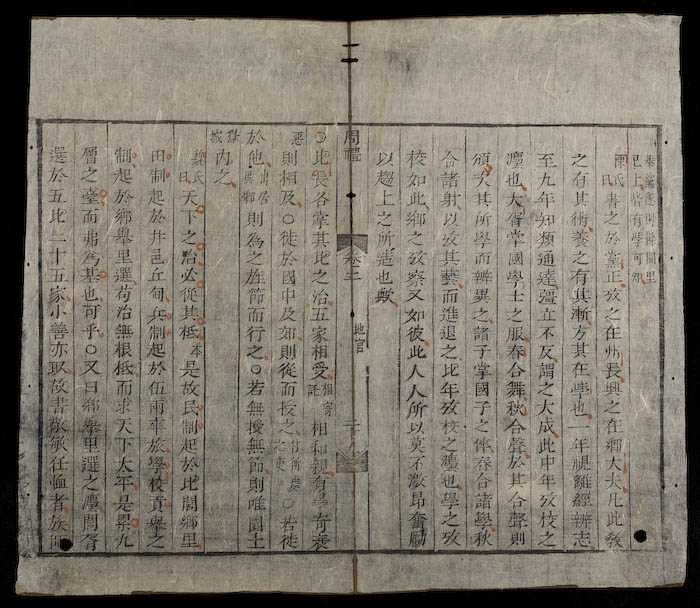 已上皆有學可知
陳氏曰書之於黨正攷之在州長興之在鄉大夫凡此敎
之有其術養之有其漸方其在學也一年視離經辨志
至九年知類通達彊立不反謂之大成此中年攷校之
灋也大胥掌國學士之服春合舞秋合聲於其合聲則
頒次其所學而辨異之諸子掌國子之倅春合諸學秋
合諸射以攷其藝而進退之比年攷校之灋也學之攷
校如此鄉之攷察又如彼此人人所以莫不激昂奮勵
以趨上之所進也歟
周禮 卷二 地官
○比長各掌其比之治五家相受相寄託相和親有辠奇衺
惡則相及○徙於國中及郊則從而授之付所處之吏○若徙
於他出居異鄉則為之旌節而行之○若無授無節則唯圜土
獄城內之
魏氏曰天下之治必從其柢本是故民制起於比閭鄉里
田制起於井邑丘甸兵制起於伍兩軍旅學校貢舉之
制起於鄉舉里選苟治無根柢而求天下太平是累九
層之臺而弗為基也可乎○又曰鄉舉里選之灋閭胥
選於五比二十五家小善亦取故書敬敏任恤者族師